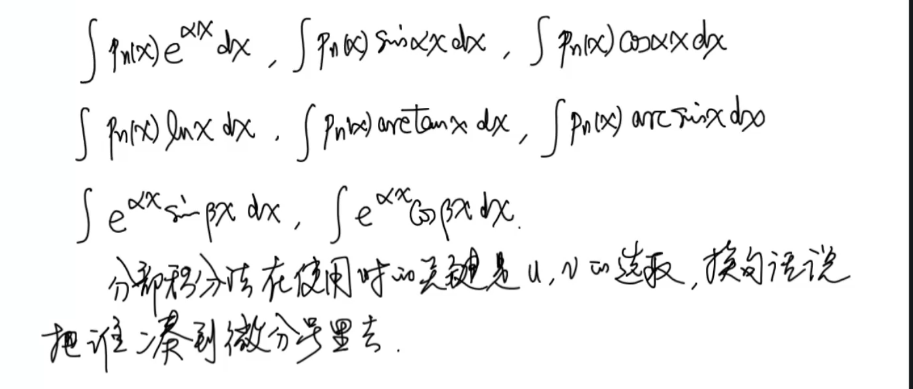 ∫ Pn(x) e^{αx} dx , ∫ Pn(x) sinαx dx , ∫ Pn(x) cosαx dx
∫ Pn(x) lnx dx , ∫ Pn(x) arctanx dx , ∫ Pn(x) arcsinx dx
∫ e^{αx} sinβx dx , ∫ e^{αx} cosβx dx.
分部积分法在使用时的关键是 u, v 的选取, 换句话说
把谁凑到微分号里去.